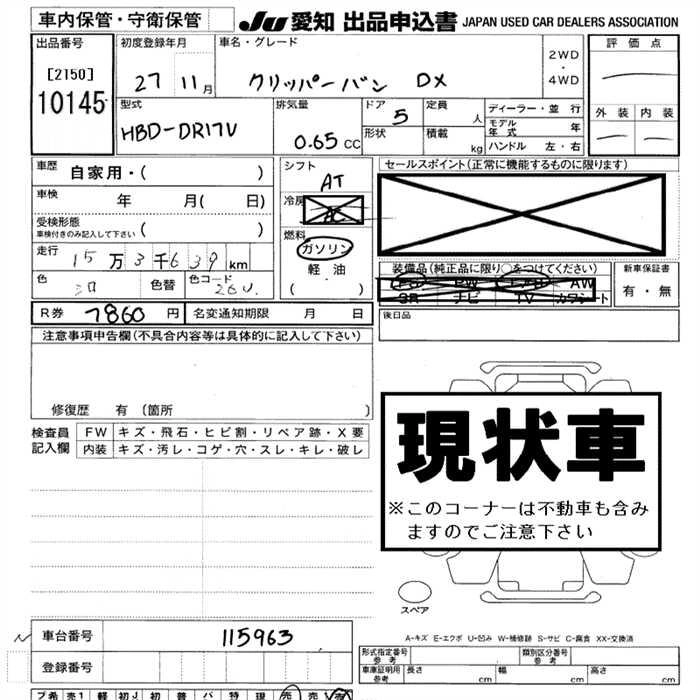 車内保管・守衛保管
JU 愛知 出品申込書 JAPAN USED CAR DEALERS ASSOCIATION
出品番号
[2150]
10145
初度登録年月
27 11月
車名・グレード
クリッパーバン DX
2WD
・
4WD
評価点
外装 内装
型式
HBD-DR17V
排気量
0.65 CC
ドア
5
形状
定員
人
積載
kg
ディーラー・並行
モデル年式 年
ハンドル 左・右
車歴
自家用・( )
車検
年 月( 日)
受検形態
車検付きのみ記入して下さい ( )
走行
15万3千639km
色 色替 色コード
シフト
AT
冷房
AC
燃料
ガソリン
軽油
( )
セールスポイント(正常に機能するものに限ります)
装備品(純正品に限り○をつけてください)
PW AW
SR ナビ TV カワシート
新車保証書
有・無
後日品
R券 7860 円
名変通知期限 月 日
注意事項申告欄(不具合内容等は具体的に記入して下さい)
修復歴 有(箇所 )
検査員
記入欄
FW キズ・飛石・ヒビ割・リペア跡・X要
内装 キズ・汚レ・コゲ・穴・スレ・キレ・破レ
現状車
※このコーナーは不動車も含み
ますのでご注意下さい
スペア
A-キズ E-エクボ U-凹み W-補修跡 S-サビ C-腐食 XX-交換済
車台番号 115963
登録番号
形式指定番号
参考
類別区分番号
参考
車庫証明用
参考
長さ cm 幅 cm 高さ cm